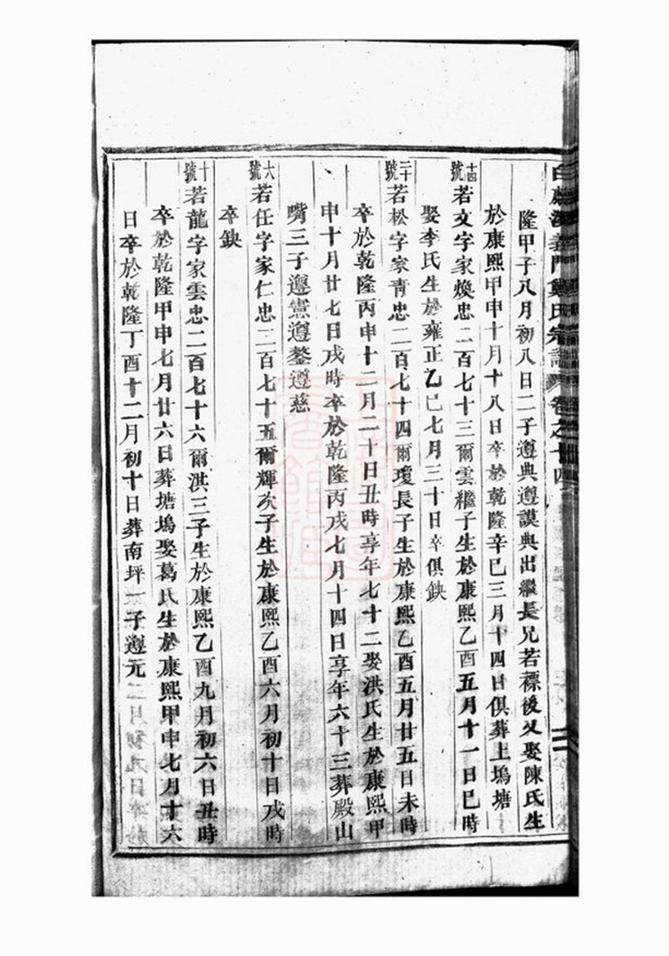 白麟溪義門鄭氏宗譜 卷之十四
隆甲子八月初八日二子遵典遵謨典出繼長兄若褾後又娶陳氏生
於康熙甲申十月十八日卒於乾隆辛巳三月十四日俱葬上塢塘
十四號若文字家煥忠二百七十三爾雲繼子生於康熙乙酉五月十一日巳時
娶李氏生於雍正乙巳七月三十日卒俱缺
二十號若松字家青忠二百七十四爾瓊長子生於康熙乙酉五月廿五日未時
卒於乾隆丙申十二月二十日丑時享年七十二娶洪氏生於康熙甲
申十月廿七日戌時卒於乾隆丙戌七月十四日享年六十三葬殿山
嘴三子遵憲遵鏊遵慈
六號若任字家仁忠二百七十五爾輝次子生於康熙乙酉六月初十日戌時
卒缺
十號若龍字家雲忠二百七十六爾洪三子生於康熙乙酉九月初六日丑時
卒於乾隆甲申七月廿六日葬塘塢娶葛氏生於康熙甲申七月十六
日卒於乾隆丁酉十二月初十日葬南坪一子遵元